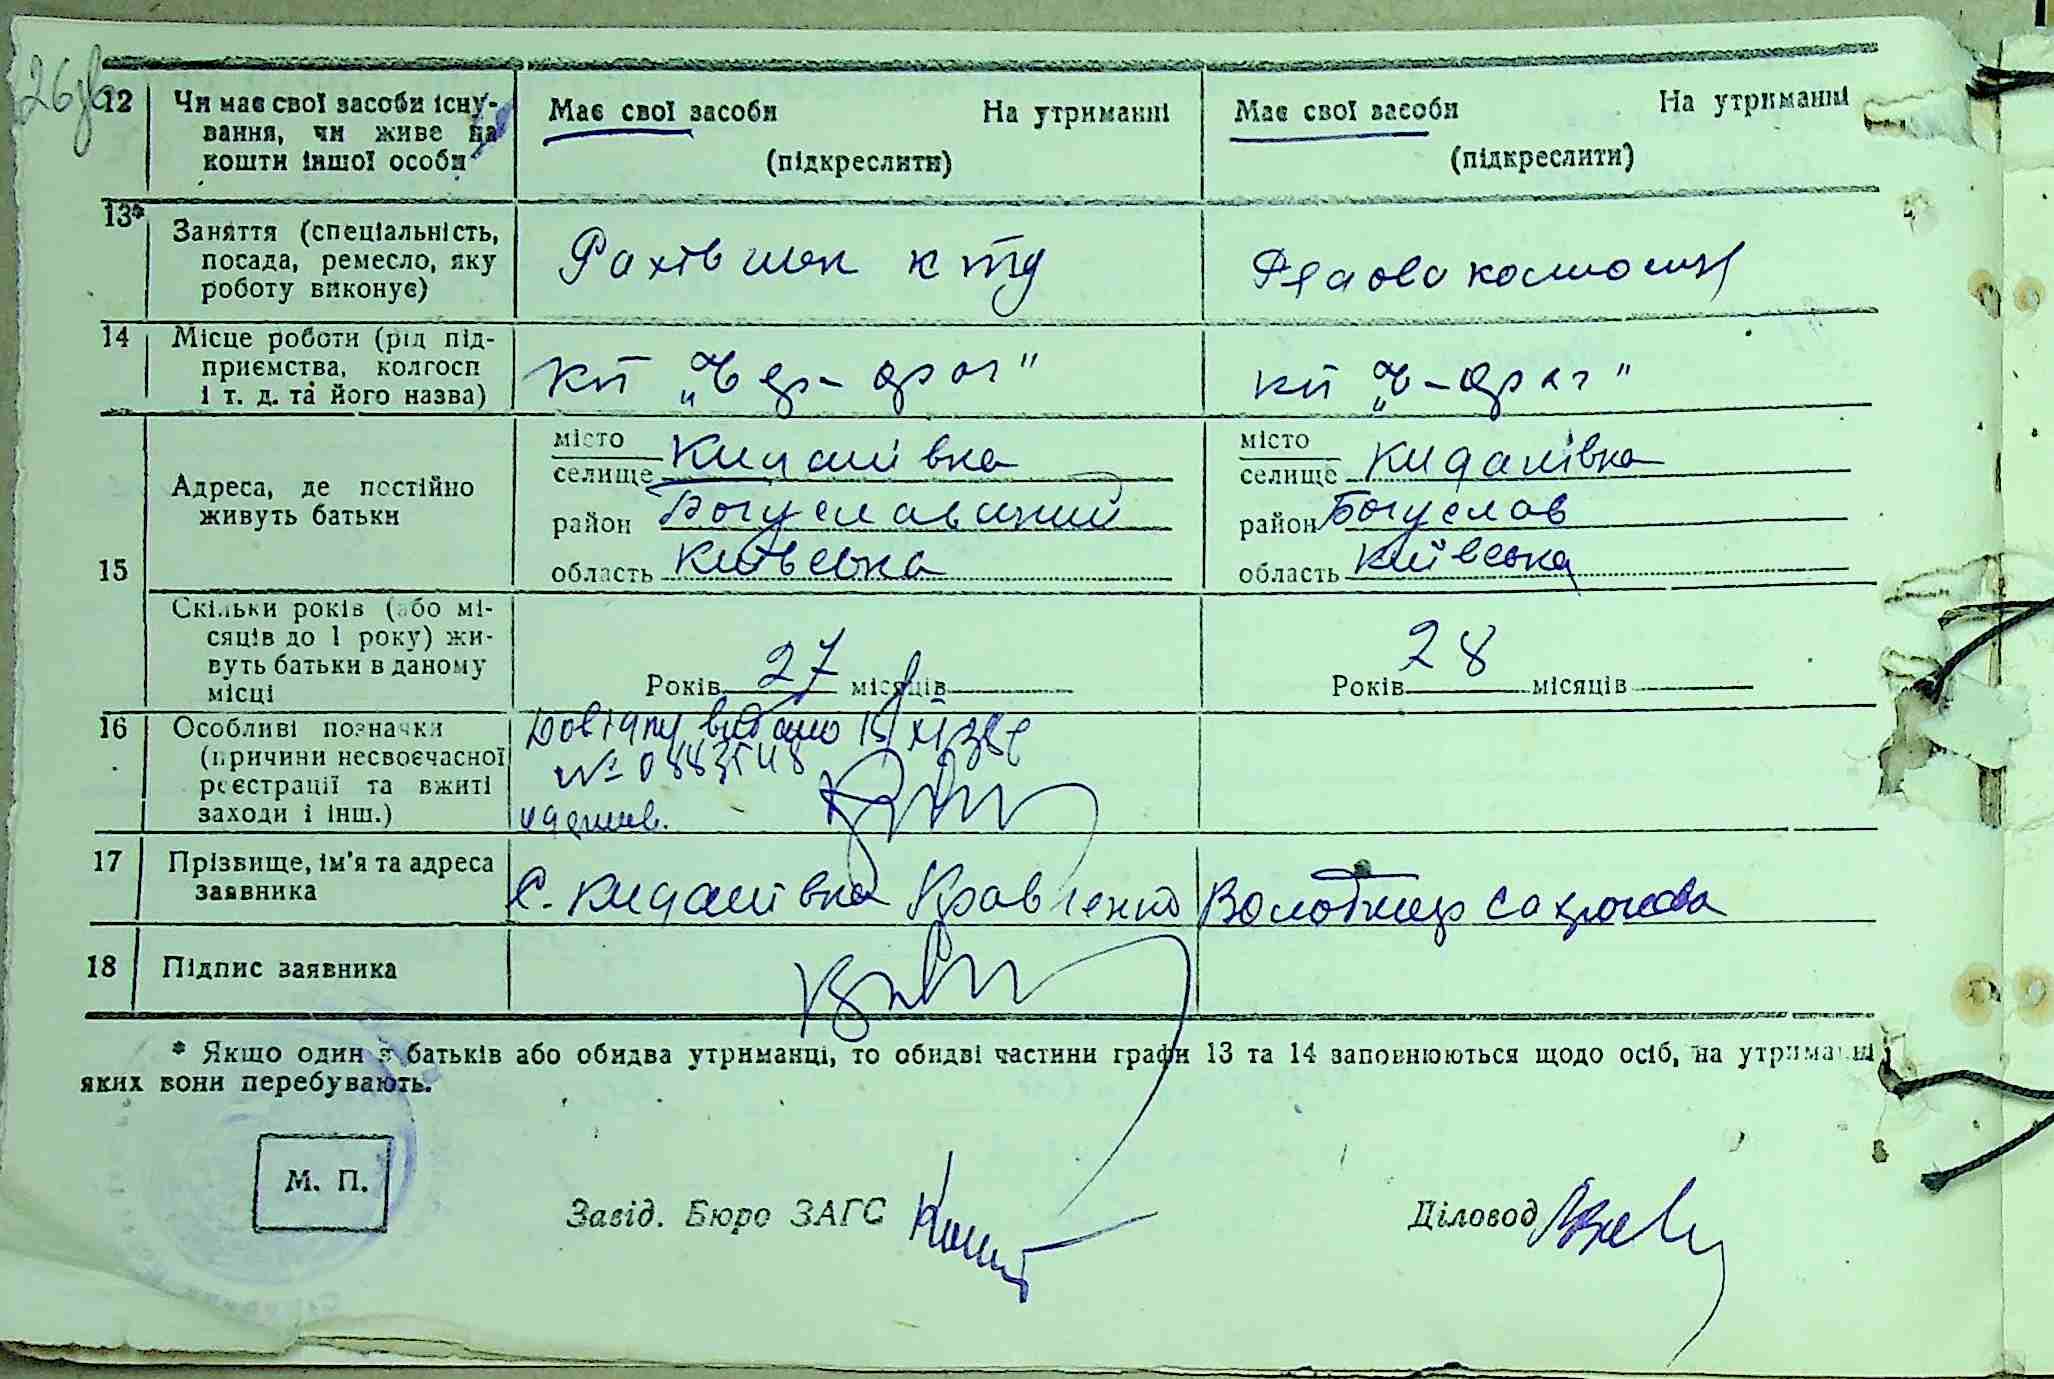 12 Чи має свої засоби існу-
вання, чи живе на
кошти іншої особи
Має свої засоби На утриманні
(підкреслити)
Має свої засоби На утриманні
(підкреслити)
13* Заняття (спеціальність,
посада, ремесло, яку
роботу виконує)
14 Місце роботи (рід під-
приємства, колгосп
і т. д. та його назва)
кп
кп
15 Адреса, де постійно
живуть батьки
місто
селище Кидапівка
район Богуславський
область Київська
місто
селище Кидапівка
район Богуслав
область Київська
Скільки років (або мі-
сяців до 1 року) жи-
вуть батьки в даному
місці
Років 27 місяців
Років 28 місяців
16 Особливі позначки
(причини несвоєчасної
реєстрації та вжиті
заходи і інш.)
видано 15/XI 38р
17 Прізвище, ім'я та адреса
заявника
С. Кидапівка Кравченко
18 Підпис заявника
* Якщо один з батьків або обидва утриманці, то обидві частини графи 13 та 14 заповнюються щодо осіб, на утриманні
яких вони перебувають.
М. П.
Завід. Бюро ЗАГС
Діловод